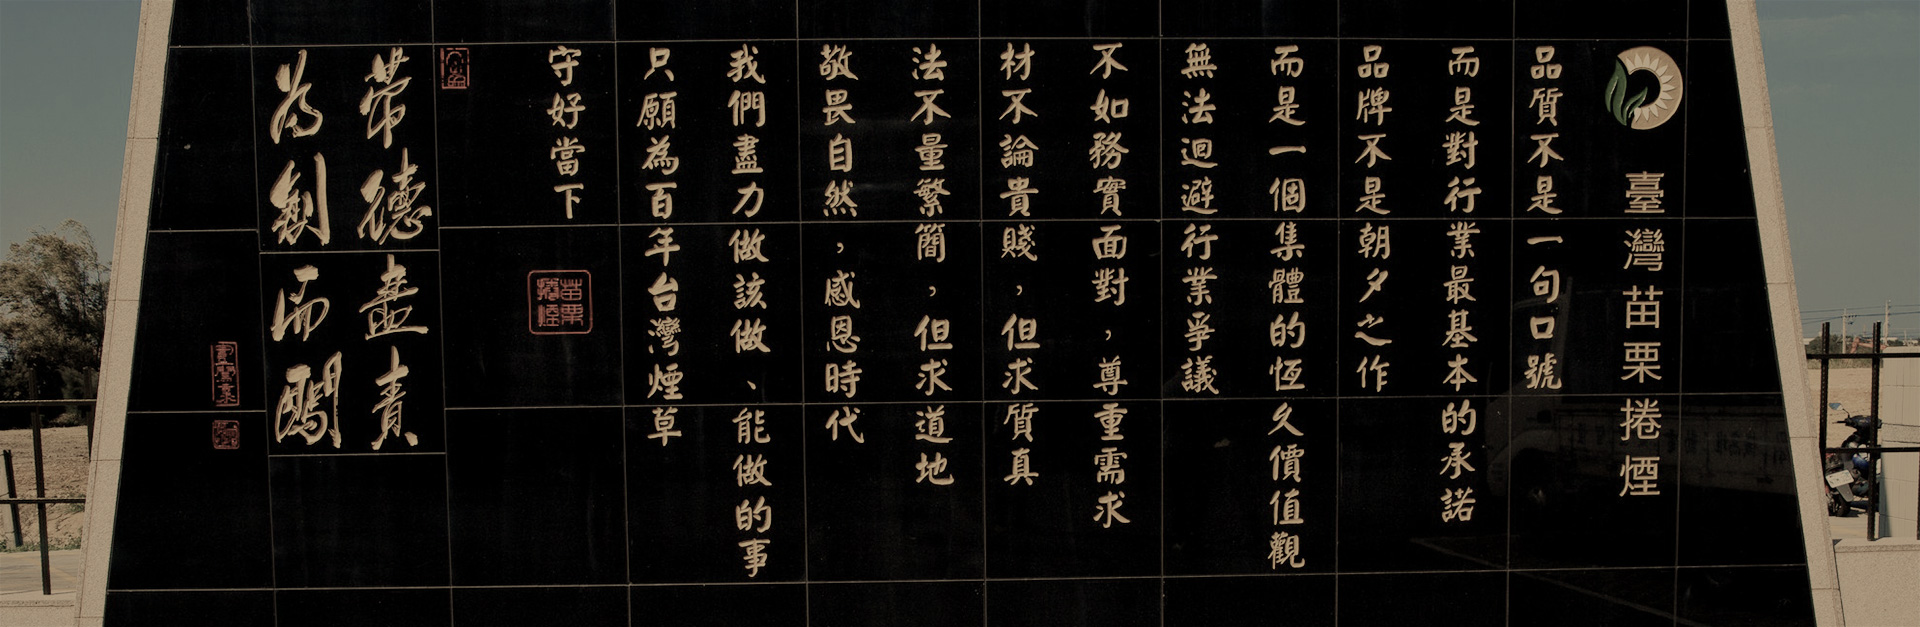 臺灣苗栗捲煙
品質不是一句口號
而是對行業最基本的承諾
品牌不是朝夕之作
而是一個集體的恆久價值觀
無法迴避行業爭議
不如務實面對，尊重需求
材不論貴賤，但求質真
法不量繁簡，但求道地
敬畏自然，感恩時代
我們盡力做該做、能做的事
只願為百年台灣煙草
守好當下
苗栗
捲煙
帶德盡責
為創而闖